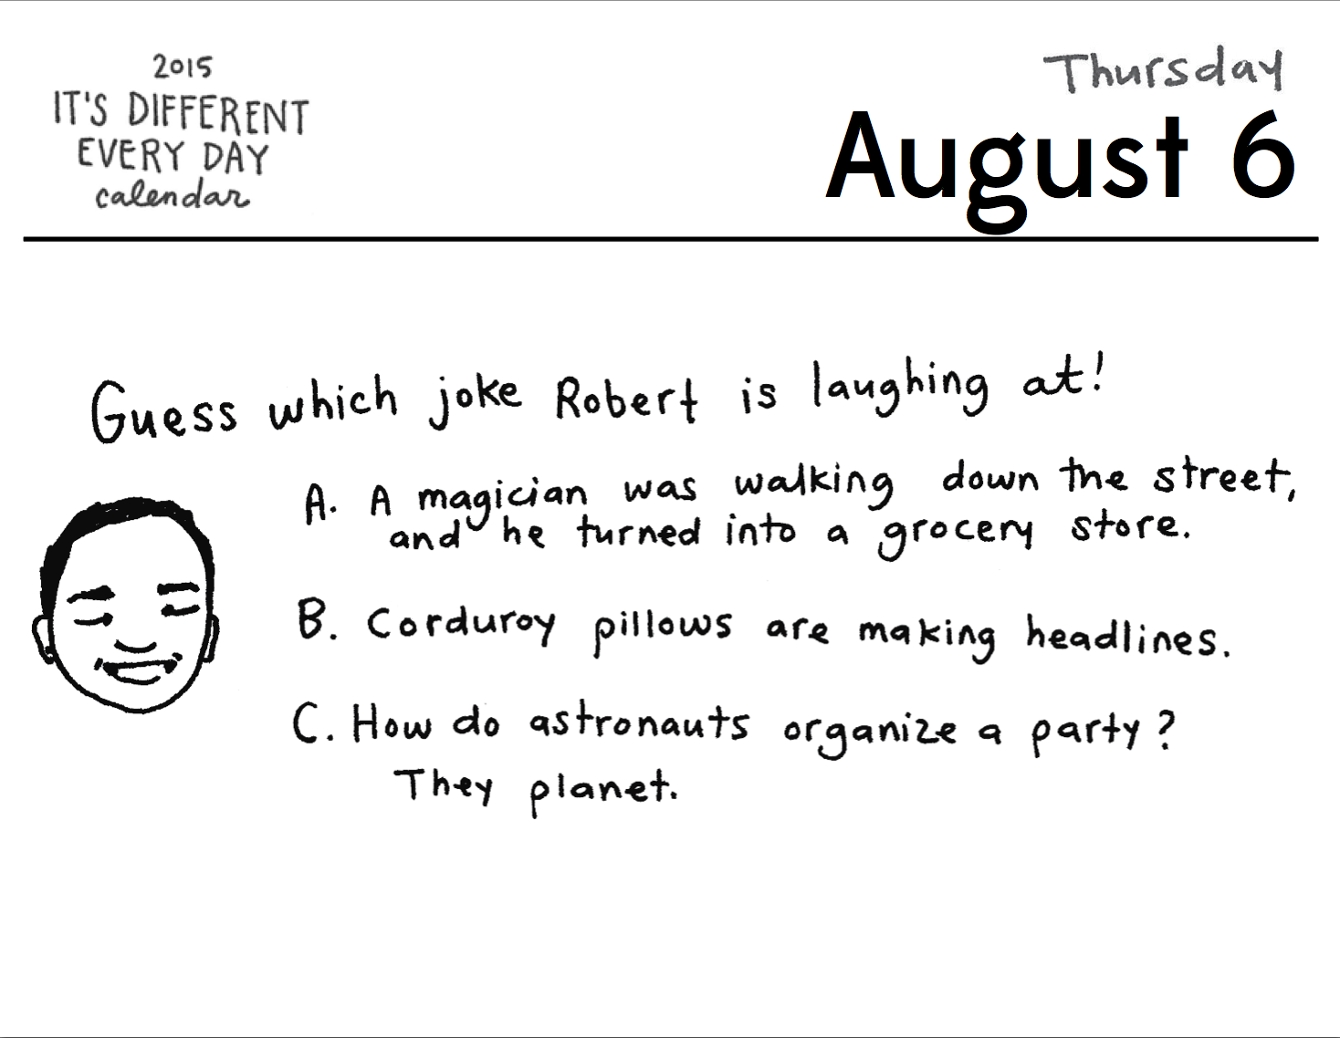 2015
IT'S DIFFERENT
EVERY DAY
calendar
Thursday
August 6
Guess which joke Robert is laughing at!
A. A magician was walking down the street,
and he turned into a grocery store.
B. Corduroy pillows are making headlines.
C. How do astronauts organize a party?
They planet.